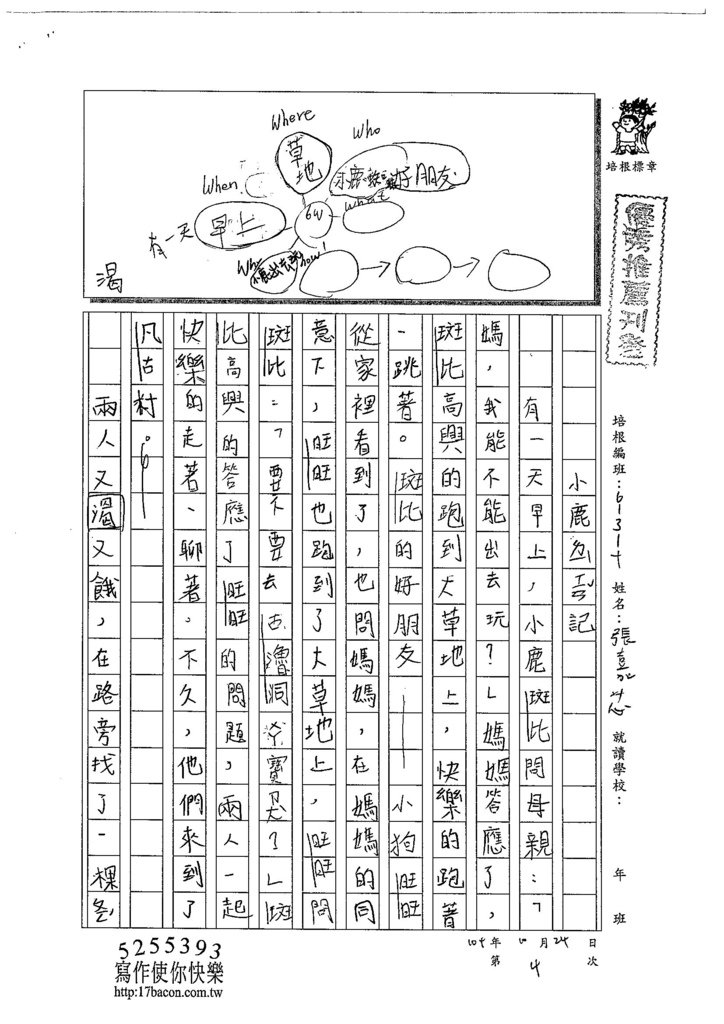 Where
Who
草地
When
好朋友
6W
What
早上
有一天
how
渴
培根標章
優秀推薦刊登
培根編班:61317
姓名:張嘉芯
就讀學校:
年 班
104年10月24日
第4次
小鹿
有一天早上,小鹿斑比問母親:「媽
媽,我能不能出去玩?」媽媽答應了,
斑比高興的跑到大草地上,快樂的跑著,
一跳著。斑比的好朋友——小狗旺旺
從家裡看到了,也問媽媽,在媽媽的同
意下,旺旺也跑到了大草地上,旺旺問
斑比:「要不要去古魯洞尋寶呢?」斑
比高興的答應了旺旺的問題,兩人一起
快樂的走著、聊著,不久,他們來到了
凡古村。
兩人又渴又餓,在路旁找了一棵
5255393
寫作使你快樂
http:17bacon.com.tw